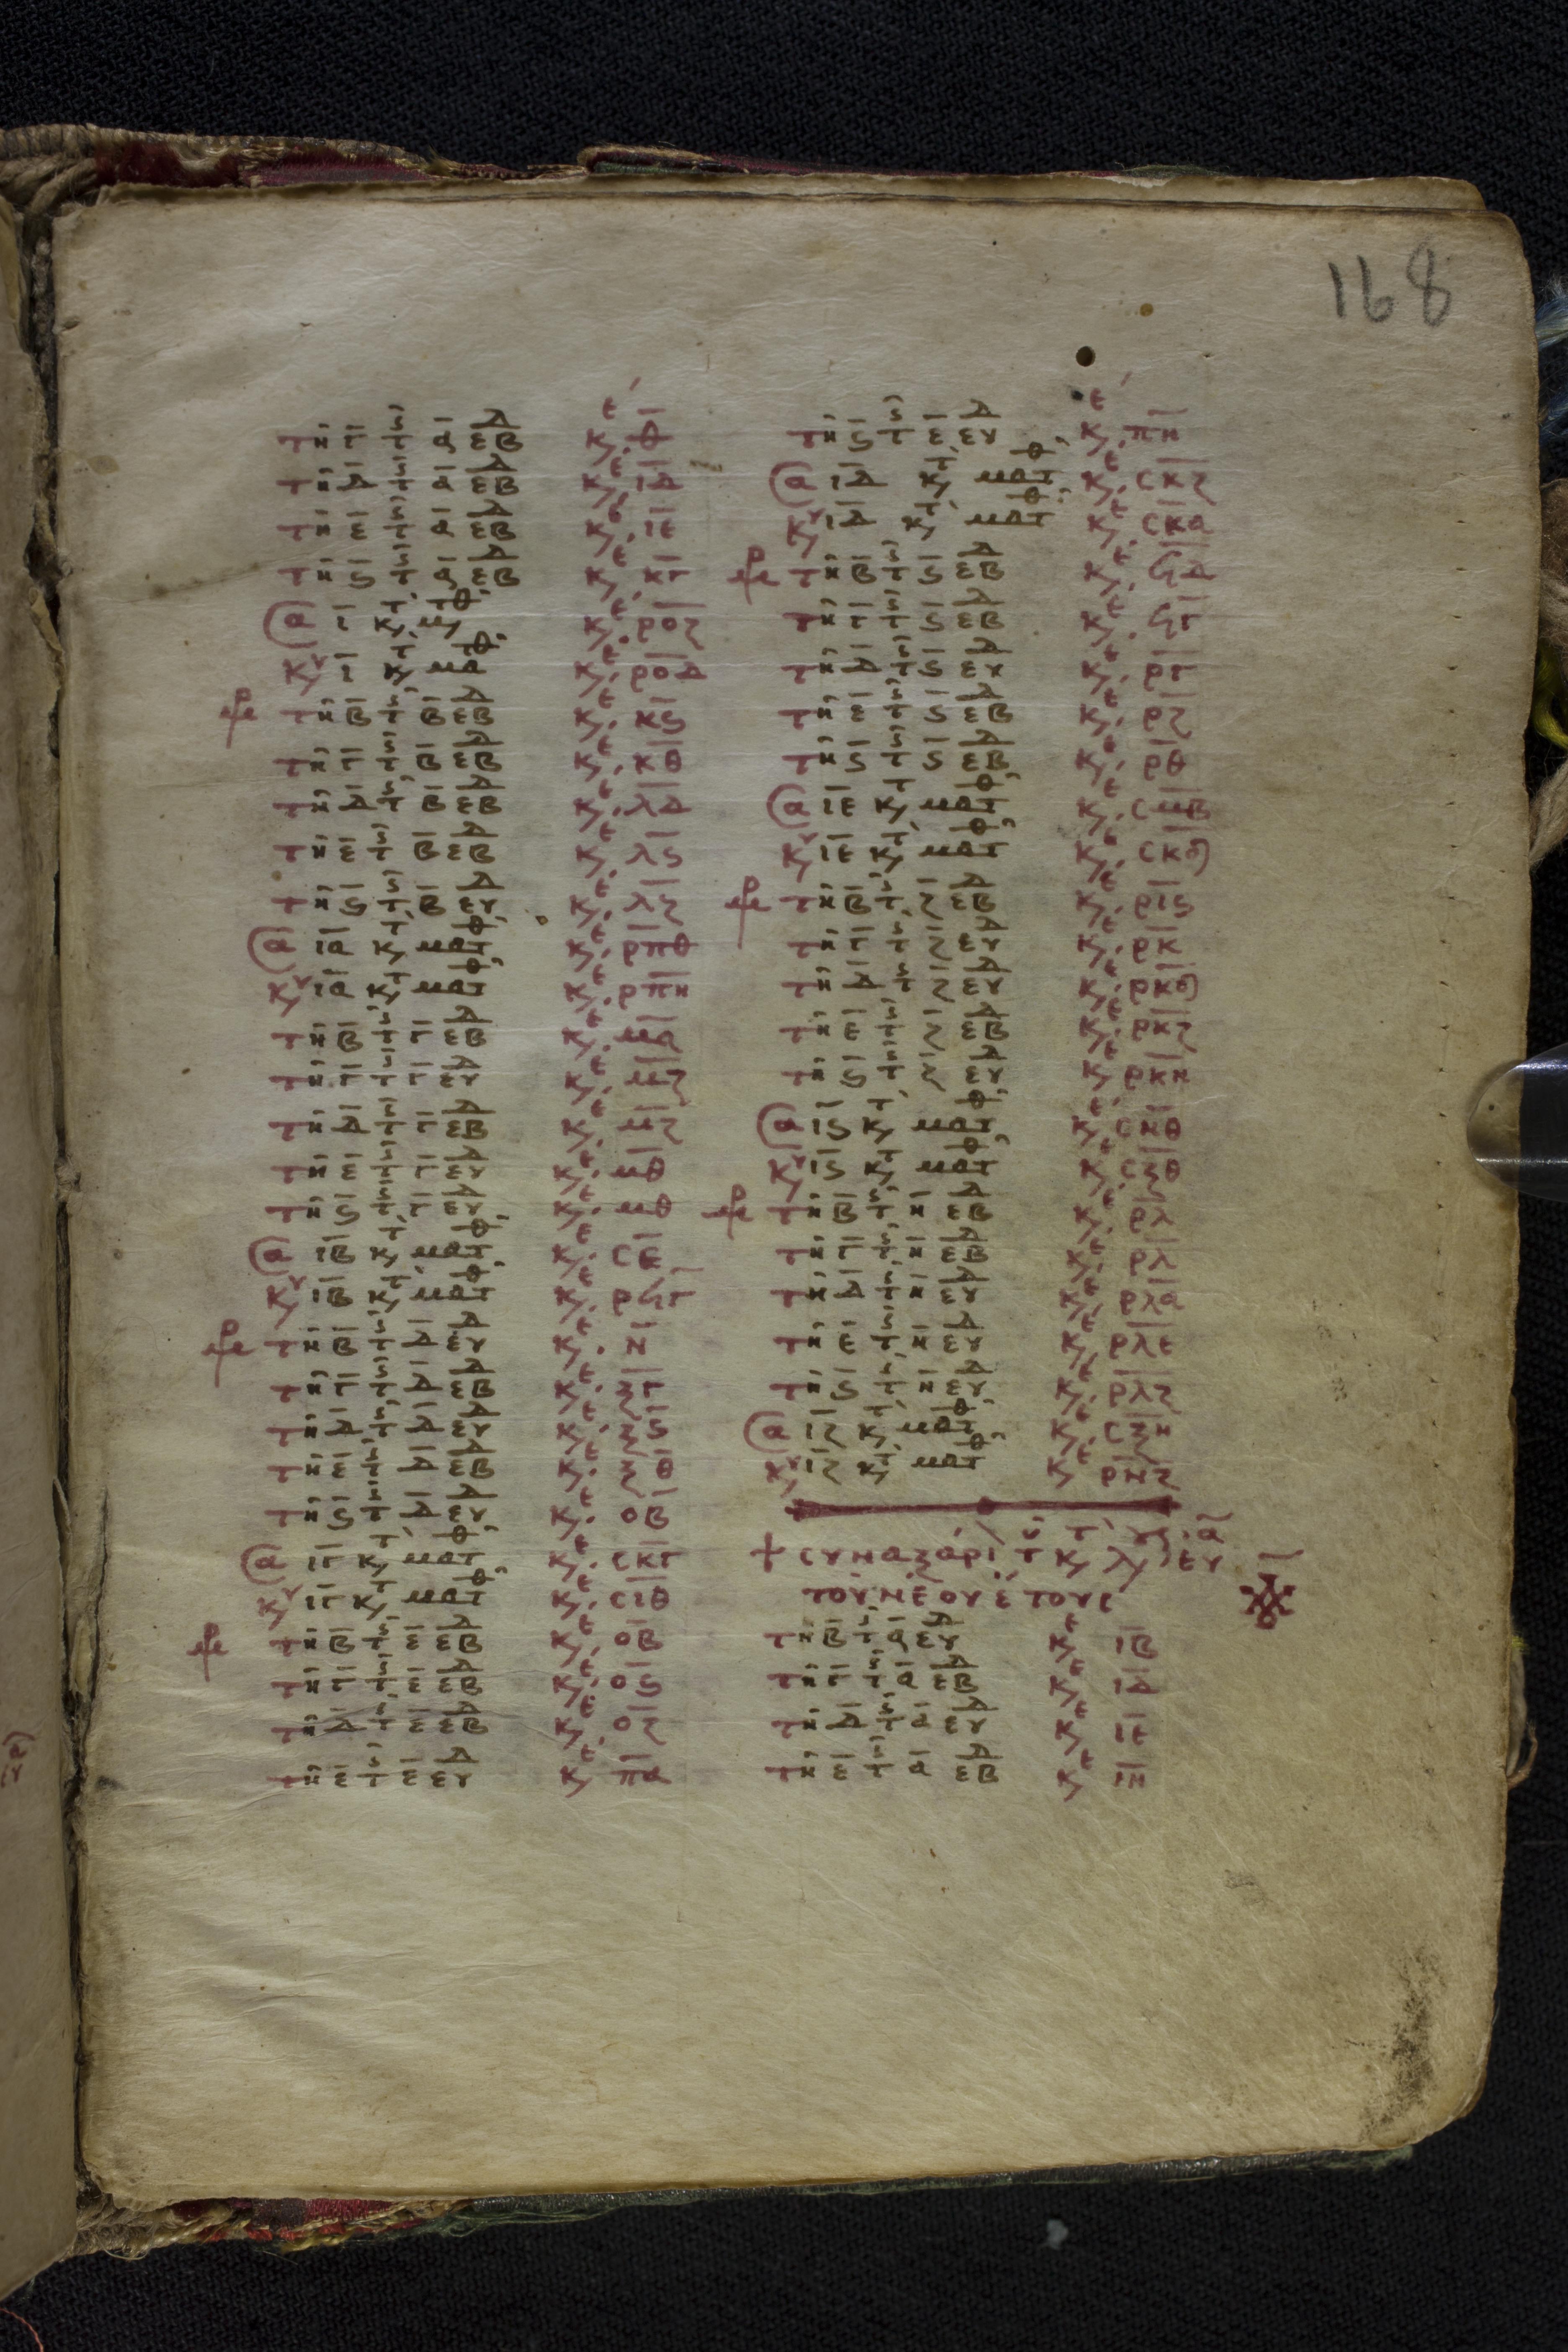 168
τη γ τς α εβδ κε θ
τη δ τς α εβδ κε ιδ
τη ε τς α εβδ κε ιε
τη ς τς α εβδ κε κγ
σα ι κτ μτθ κε ροζ
κυ ι κτματθ κε ροδ
τη β τς β εβδ κε κς
τη γ τς β εβδ κε κθ
τη δ τς β εβδ κε λδ
τη ε τς β εβδ κε λς
τη ς τς β ευδ κε λζ
σα ια κτ ματθ κε ρπθ
κυ ια κτ ματθ κε ρπη
τη β τς γ εβδ κε μα
τη γ τς γ ευδ κε μζ
τη δ τς γ εβδ κε μζ
τη ε τς γ ευδ κε μθ
τη ς τς γ ευδ κε μθ
σα ιβ κτ ματθ κε σε
κυ ιβ κτ ματθ κε ρϟγ
τη β τς δ ευδ κε ν
τη γ τς δ εβδ κε ξγ
τη δ τς δ ευδ κε ξς
τη ε τς δ εβδ κε ξθ
τη ς τς δ ευδ κε οβ
σα ιγ κτ ματθ κε σκγ
κυ ιγ κτ ματθ κε σιθ
τη β τς ε εβδ κε οβ
τη γ τς ε εβδ κε ος
τη δ τς ε εβδ κε οζ
τη ε τς ε ευδ κε πα
τη ς τς ε ευδ κε πη
σα ιδ κτ ματθ κε σκζ
κυ ιδ κτ ματθ κε σκα
τη β τς ς εβδ κε ϟδ
τη γ τς ς εβδ κε ϟγ
τη δ τς ς ευδ κε ργ
τη ε τς ς εβδ κε ρζ
τη ς τς ς εβδ κε ρθ
σα ιε κτ ματθ κε σμβ
κυ ιε κτ ματθ κε σκϛ
τη β τς ζ εβδ κε ρις
τη γ τς ζ ευδ κε ρκ
τη δ τς ζ ευδ κε ρκϛ
τη ε τς ζ εβδ κε ρκζ
τη ς τς ζ ευδ κε ρκη
σα ις κτ ματθ κε σνθ
κυ ις κτ ματθ κε σξθ
τη β τς η εβδ κε ρλ
τη γ τς η εβδ κε ρλ
τη δ τς η ευδ κε ρλα
τη ε τς η ευδ κε ρλε
τη ς τς η ευδ κε ρλζ
σα ιζ κτ ματθ κε σξη
κυ ιζ κτ ματθ κε ρνζ
+ συναξάρι τ κτ λ ευα
τοῦ νέου έτους
τη β τς α ευδ κε ιβ
τη γ τς α εβδ κε ιδ
τη δ τς α ευδ κε ιε
τη ε τς α εβδ κε ιη